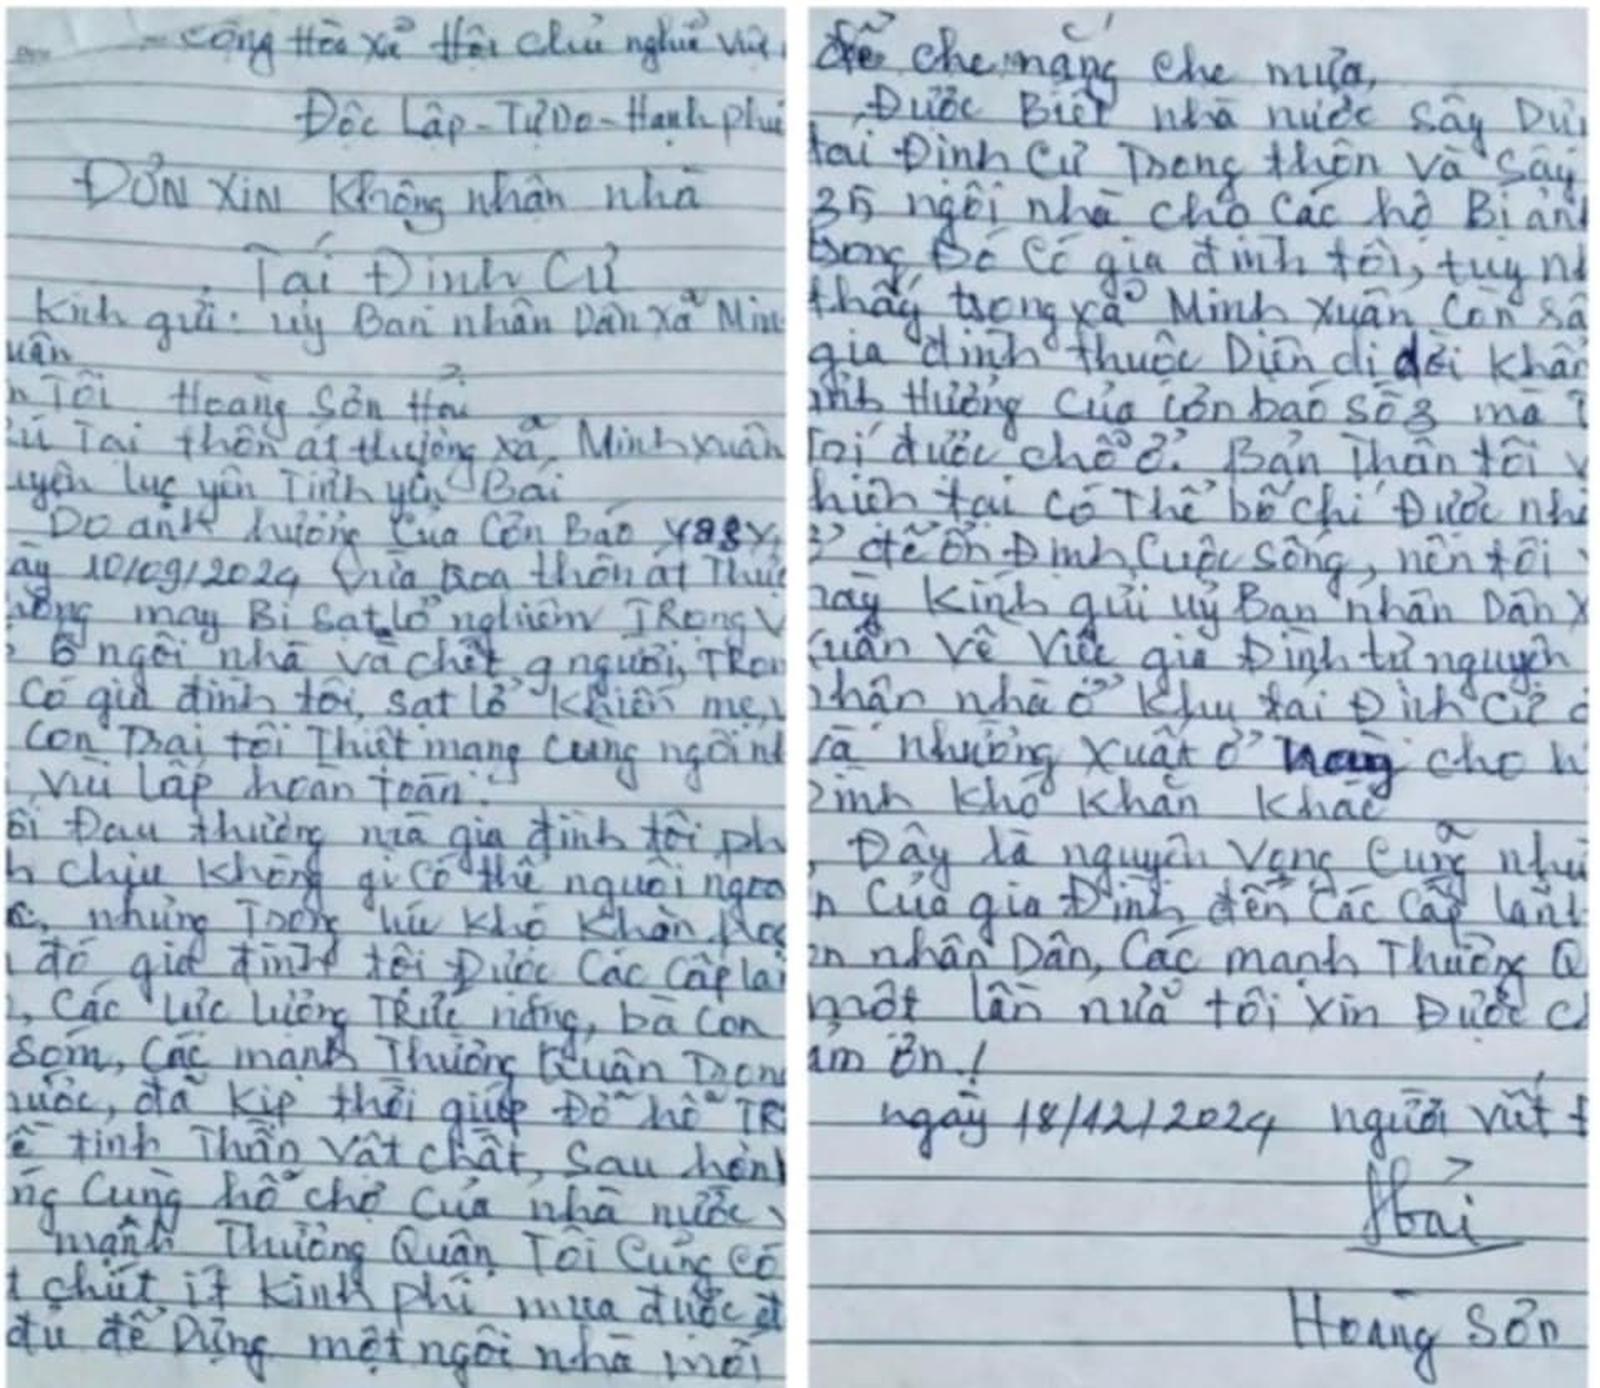 Cộng Hòa xã Hội chủ nghĩa Việ
Độc Lập - Tự Do - Hạnh phú
ĐƠN XIN không nhận nhà
Tái Định Cư
Kính gửi: uỷ Ban nhân Dân xã Min
uân
n Tôi Hoàng Sơn Hải
ú Tại thôn át thượng xã Minh xuân
uyện lục yên Tỉnh yên Bái
Do ảnh hưởng Của Cơn Bão yagy
ày 10/09/2024 thôn át Thượ
ông may Bị Sạt lở nghiêm TRọng V
6 ngôi nhà và chết 9 người, TRon
Có gia đình tôi, sạt lở khiến mẹ, v
Con Trai tôi Thiệt mạng cùng ngôi nh
vùi lấp hoàn toàn.
ỗi Đau thương mà gia đình tôi ph
h chịu không gì có thể nguôi ngoa
nhưng Trong lúc khó khăn hoạ
đó gia đình tôi Được Các Cấp lã
, Các lực lượng TRức năng, bà con
Sóm, Các mạnh Thường Quân Tron
nước, đã kịp thời giúp Đỡ hỗ TR
ề tinh Thần vật chất, Sau hơn
ng Cùng hỗ chợ Của nhà nước v
mạnh Thường Quân Tôi Cũng Có
t chút ít kinh phí mua được đ
đủ để Dựng một ngôi nhà mới
để che nắng che mưa,
Được Biết nhà nước Sây Dự
tái Định Cư Trong thôn và Sây
35 ngôi nhà cho Các hộ Bị ản
trong Đó Có gia đình tôi, tuy nh
thấy trong xã Minh Xuân Còn
gia đình thuộc Diện di dời khẩ
ảnh Hưởng Của Cơn bão số 3 mà
được chỗ ở. Bản Thân tôi v
hiện tại Có Thể bố chí Được nh
ở để ổn Định Cuộc Sống, nên tôi
này kính gửi uỷ Ban nhân Dân X
xuân Về Việc gia Đình tự nguyện
nhận nhà ở khu tái Định Cư
và nhường Xuất ở này cho h
đình khó khăn khác
Đây là nguyện Vọng Cũng nhu
n Của gia Đình đến Các Cấp lãnh
an nhân Dân, Các mạnh Thường Q
một lần nữa tôi xin Được c
ảm ơn!
ngày 18/12/2024 người viết
Hải
Hoàng Sơn